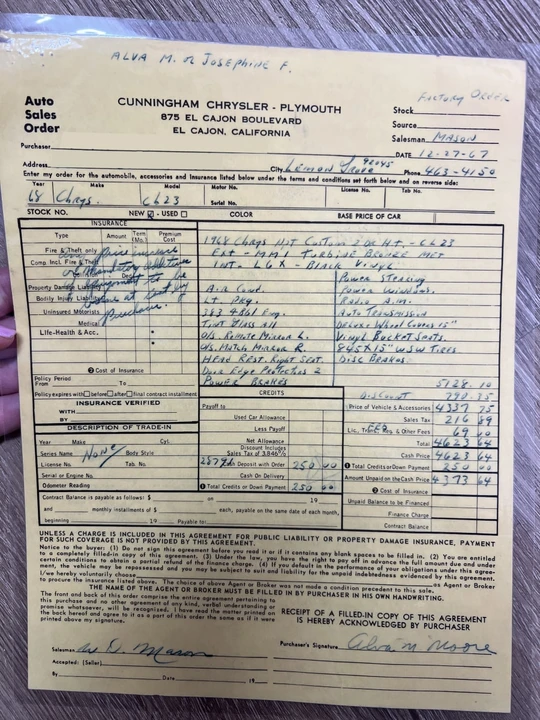 ALVA M. or JOSEPHINE F.
Auto Sales Order
CUNNINGHAM CHRYSLER - PLYMOUTH
875 EL CAJON BOULEVARD
EL CAJON, CALIFORNIA
FACTORY ORDER
Stock
Source
Salesman MASON
Purchaser
DATE 12-27-67
Address
City LEMON GROVE 92045 Phone 463-4150
Enter my order for the automobile, accessories and insurance listed below under the terms and conditions set forth below and on reverse side:
Year Make Model Motor No. License No. Tab No.
68 Chrys. CL23 Serial No.
STOCK NO. NEW - USED COLOR BASE PRICE OF CAR
INSURANCE
Type Amount Term (Mo.) Premium Cost
1968 Chrys Npt Custom 2 DR H.T. - CL23
Fire & Theft only
EXT - MM1 TURBINE BRONZE MET
Comp. Incl. Fire & Theft
INT - L6X - BLACK VINYL
POWER STEERING
Property Damage Liability
AIR COND. POWER WINDOWS
Bodily Injury Liability
LT. PKG. RADIO A.M.
Uninsured Motorists
383 4BBL ENG. AUTO TRANSMISSION
Medical
TINT GLASS ALL DELUXE WHEEL COVERS 15"
Life-Health & Acc.
O/S. REMOTE MIRROR L. VINYL BUCKET SEATS.
O/S. MATCH MIRROR R. 845X15" WSW TIRES
HEAD REST. RIGHT SEAT. DISC BRAKES
Cost of Insurance
DOOR EDGE PROTECTORS 2
Policy Period From To
POWER BRAKES 5128.10
Policy expires with before after final contract installment
CREDITS
DISCOUNT 790.35
INSURANCE VERIFIED
Payoff to
Price of Vehicle & Accessories 4337 75
WITH
Used Car Allowance
Sales Tax 216 89
BY
Less Payoff
Lic., Reg. & Other Fees 69 00
DESCRIPTION OF TRADE-IN
Net Allowance
Total 4623 64
Year Make Cyl.
Discount Includes Sales Tax of 3.846%
Cash Price 4623 64
Series Name NONE Body Style
Cash Deposit with Order 250 00
Total Credits or Down Payment 250 00
License No. Tab. No.
Cash On Delivery
Amount Unpaid on the Cash Price 4373 64
Serial or Engine No.
Total Credits or Down Payment 250 00
Cost of Insurance
Odometer Reading
Unpaid Balance to be Financed
Contract Balance is payable as follows: $ on 19
Finance Charge
and monthly installments of $ each, payable on the same date of each month,
Contract Balance
beginning 19 Payable to:
UNLESS A CHARGE IS INCLUDED IN THIS AGREEMENT FOR PUBLIC LIABILITY OR PROPERTY DAMAGE INSURANCE, PAYMENT
FOR SUCH COVERAGE IS NOT PROVIDED BY THIS AGREEMENT.
Notice to the buyer: (1) Do not sign this agreement before you read it or if it contains any blank spaces to be filled in. (2) You are entitled
to a completely filled-in copy of this agreement. (3) Under the law, you have the right to pay off in advance the full amount due and under
certain conditions to obtain a partial refund of the finance charge. (4) If you default in the performance of your obligations under this agreement,
the vehicle may be repossessed and you may be subject to suit and liability for the unpaid indebtedness evidenced by this agreement.
I/we hereby voluntarily choose as Agent or Broker
to procure the insurance listed above. The choice of above Agent or Broker was not made a condition precedent to this sale.
THE NAME OF AGENT OR BROKER MUST BE FILLED IN BY PURCHASER IN HIS OWN HANDWRITING.
The front and back of this order comprise the entire agreement pertaining to
this purchase and no other agreement of any kind, verbal understanding or
promise whatsoever, will be recognized. I have read the matter printed on
the back hereof and agree to it as a part of this order the same as if it were
printed above my signature.
RECEIPT OF A FILLED-IN COPY OF THIS AGREEMENT
IS HEREBY ACKNOWLEDGED BY PURCHASER
Salesman Mason
Purchaser's Signature Alva M Moore
Accepted: (Seller)
By Date 19